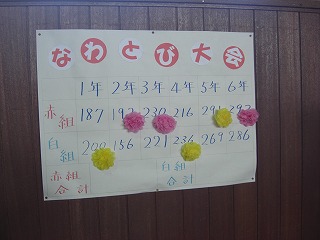 なわとび大会
1年 2年 3年 4年 5年 6年
赤組 187 192 230 216 291 292
白組 200 156 221 236 269 286
赤組合計 白組合計